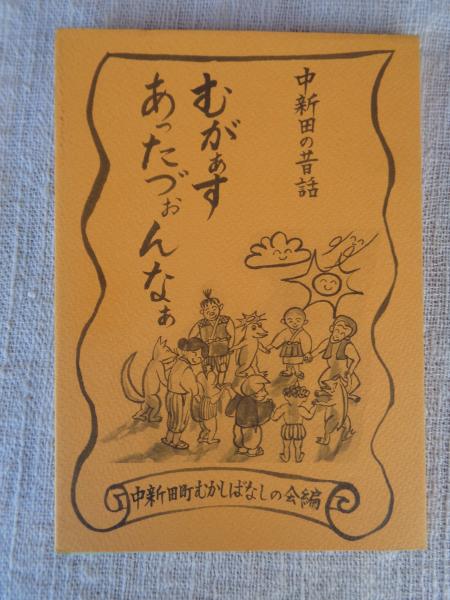 中新田の昔話
むがぁす
あったづぉんなぁ
中新田町むかしばなしの会編